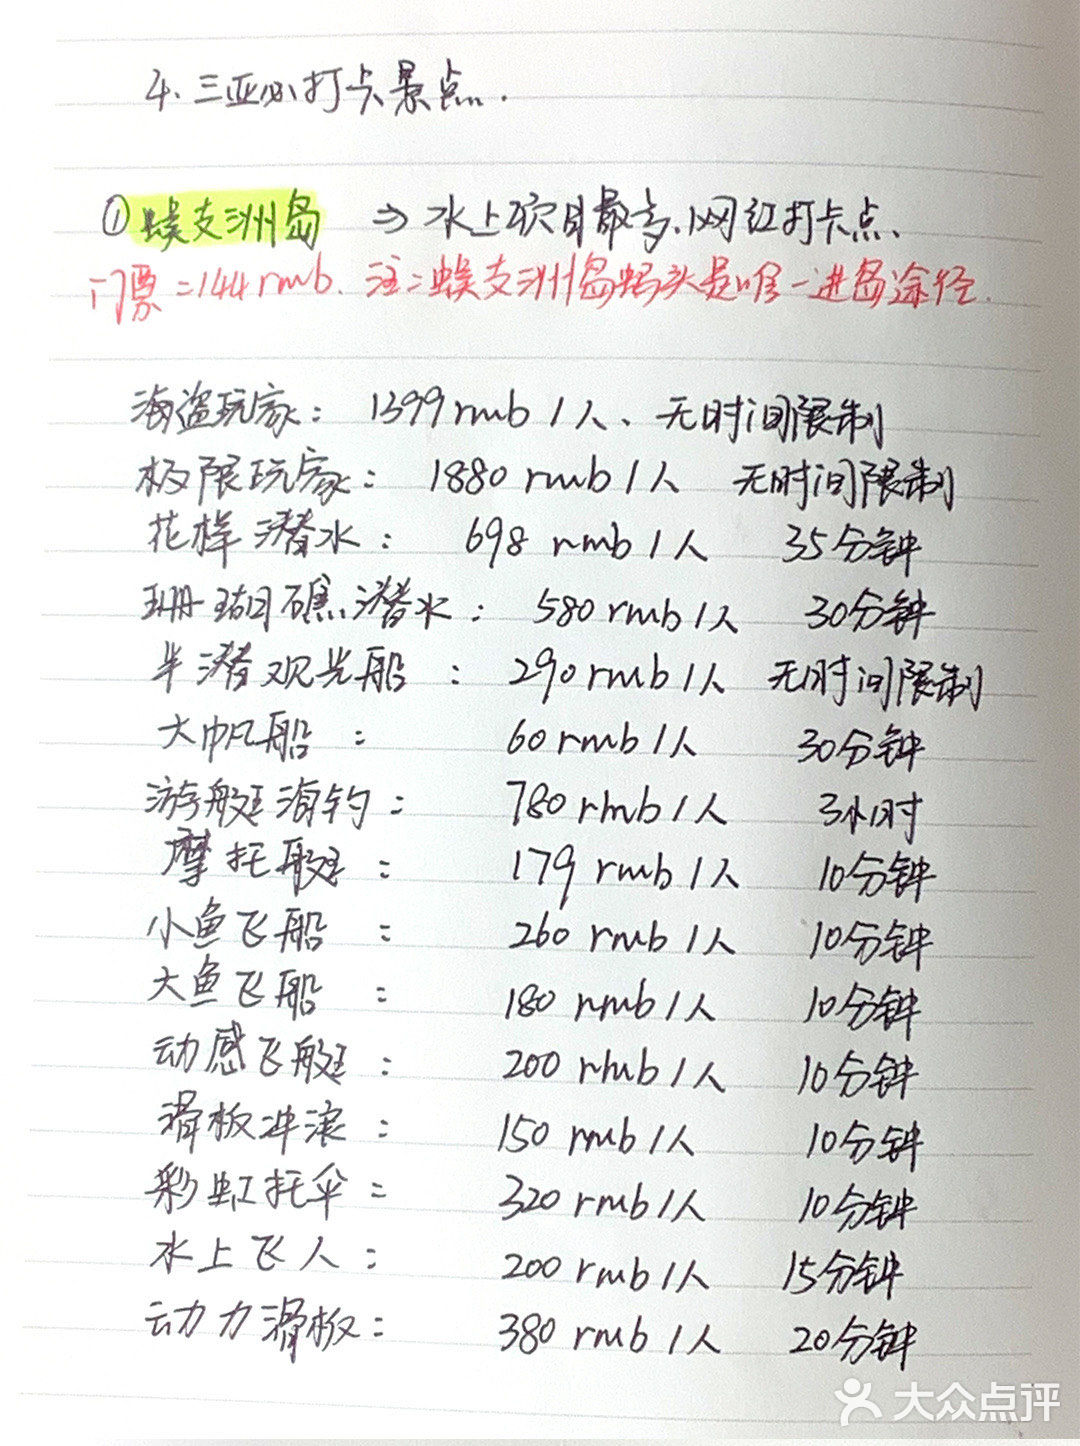 4. 三亚必打卡景点.
① 蜈支洲岛 ⇒ 水上项目最多、网红打卡点、
门票=144rmb. 注:蜈支洲岛码头是唯一进岛途径.
海盗玩家: 1399rmb/人、无时间限制
极限玩家: 1880 rmb/人 无时间限制
花样潜水: 698 rmb/人 35分钟
珊瑚礁潜水: 580 rmb/人 30分钟
半潜观光船: 290 rmb/人 无时间限制
大帆船: 60 rmb/人 30分钟
游艇海钓: 780 rmb/人 3小时
摩托艇: 179 rmb/人 10分钟
小鱼飞船: 260 rmb/人 10分钟
大鱼飞船: 180 rmb/人 10分钟
动感飞艇: 200 rmb/人 10分钟
滑板冲浪: 150 rmb/人 10分钟
彩虹托伞: 320 rmb/人 10分钟
水上飞人: 200 rmb/人 15分钟
动力滑板: 380 rmb/人 20分钟
大众点评